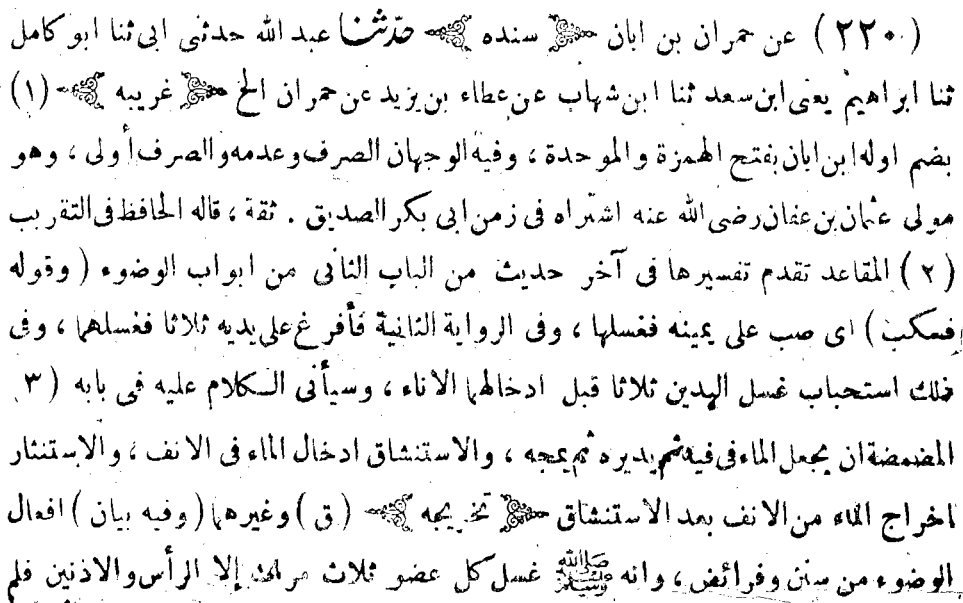 (٢٢٠) عن حمران بن ابان ﴿ سنده ﴾ حدّثنا عبد الله حدثنى ابى ثنا ابو كامل
ثنا ابراهيم يعنى ابن سعد ثنا ابن شهاب عن عطاء بن يزيد عن حمران الخ ﴿ غريبه ﴾ (١)
بضم اوله ابن ابان بفتح الهمزة والموحدة ، وفيه الوجهان الصرف وعدمه والصرف أولى ، وهو
مولى عثمان بن عفان رضى الله عنه اشتراه فى زمن ابى بكر الصديق . ثقة ، قاله الحافظ فى التقريب
(٢) المقاعد تقدم تفسيرها فى آخر حديث من الباب الثانى من ابواب الوضوء ( وقوله
فسكب ) اى صب على يمينه فغسلها ، وفى الرواية الثانية فأفرغ على يديه ثلاثا فغسلهما ، وفى
ذلك استحباب غسل اليدين ثلاثا قبل ادخالهما الاناء ، وسيأتى الكلام عليه فى بابه (٣
المضمضة ان يجعل الماء فى فيه ثم يديره ثم يمجه ، والاستنشاق ادخال الماء فى الانف ، والاستنثار
اخراج الماء من الانف بعد الاستنشاق ﴿ تخريجه ﴾ (ق) وغيرهما (وفيه بيان) افعال
الوضوء من سنن وفرائض ، وانه ﷺ غسل كل عضو ثلاث مرات إلا الرأس والاذنين فلم